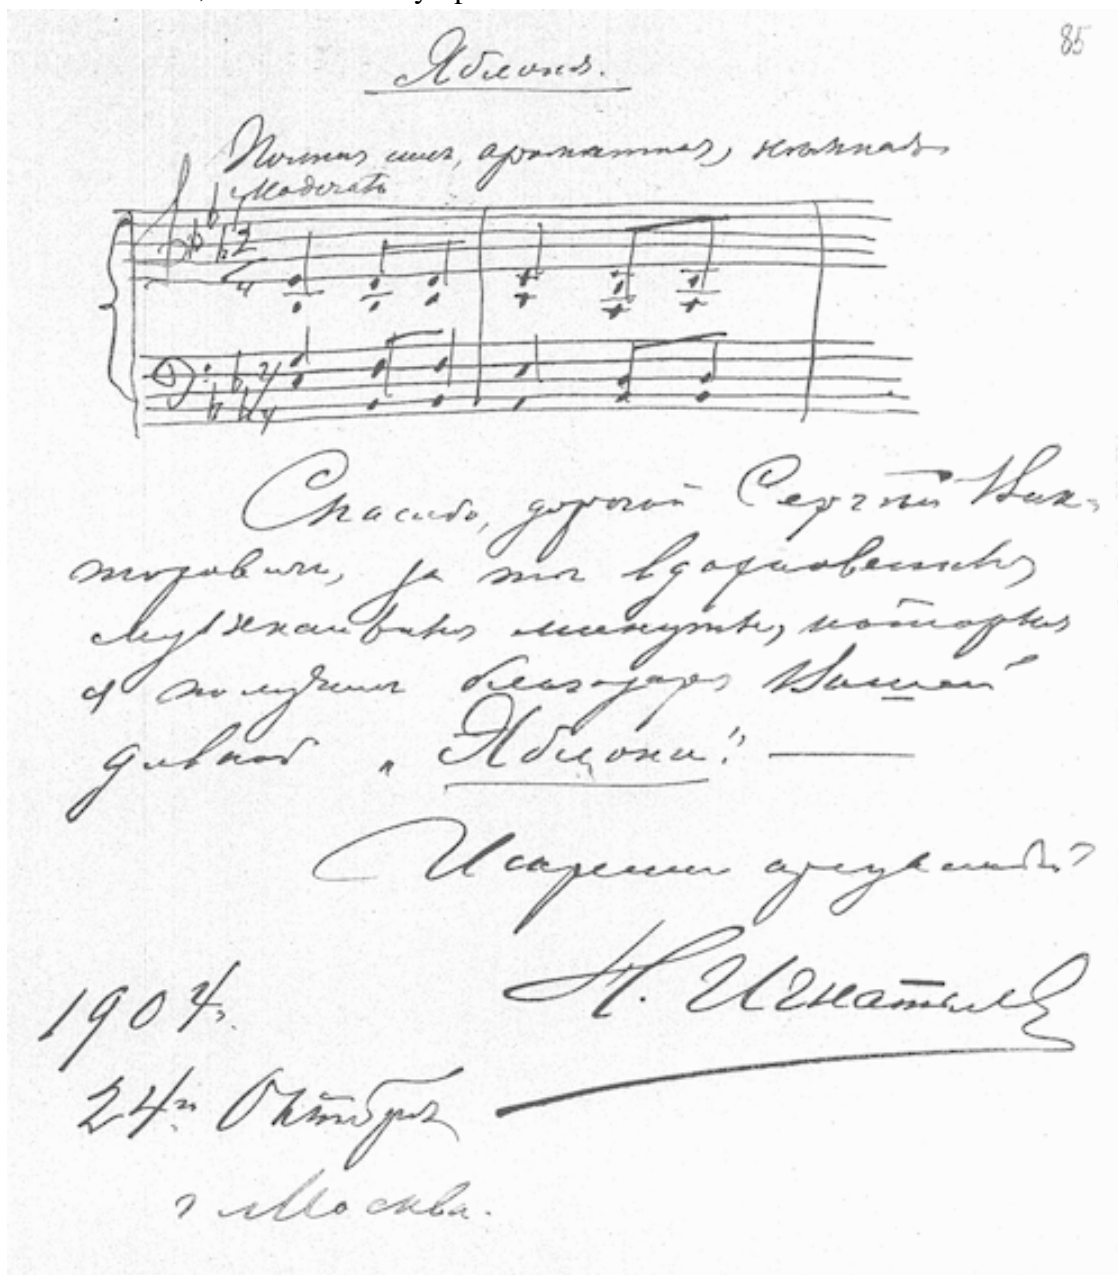 85
Яблоня.
Полная сил, ароматная, нежная
Moderato
2/4
2/4
Спасибо, дорогой Сергѣй Вик-
торович, за тѣ вдохновенныя
музыкальныя минуты, которыя
я получил благодаря Вашей
дивной „Яблони". —
Искренно
Н. Игнатьев
1904 г.
24го Октября
г Москва.